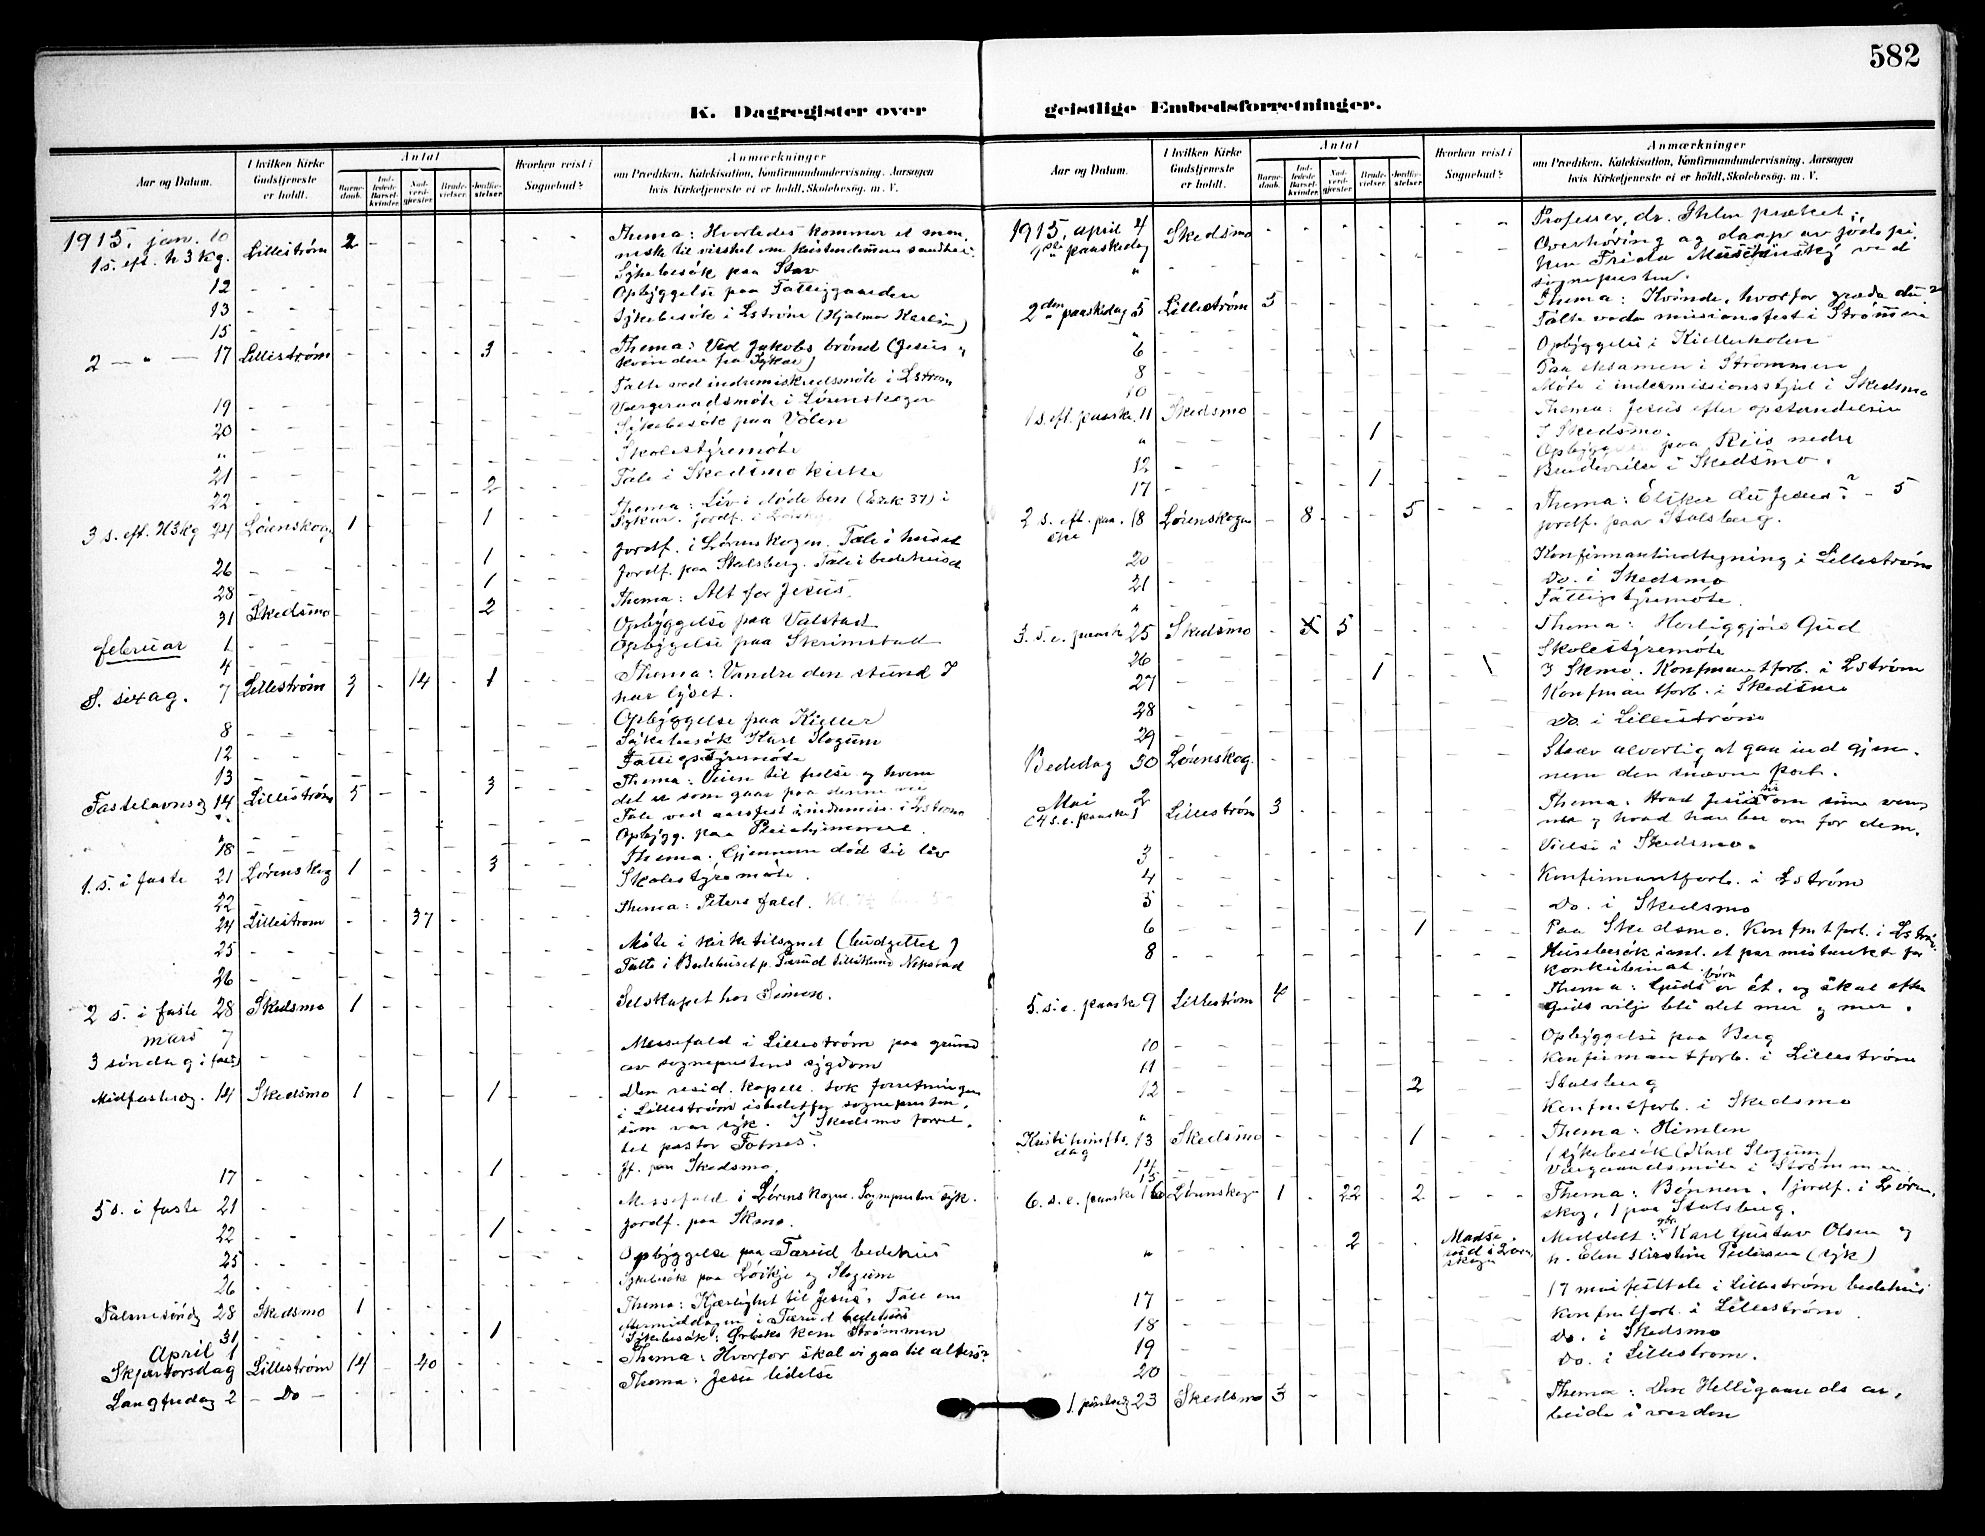 582
K. Dagregister over
Aar og Datum.
I hvilken Kirke Gudstjeneste er holdt.
Antal
Barnedaab.
Indledede Barselkvinder.
Nadverdgjester.
Brudevielser.
Jordfæstelser.
Hvorhen reist i Sognebud?
Anmærkninger
om Prædiken, Katekisation, Konfirmandundervisning, Aarsagen
hvis Kirketjeneste ei er holdt, Skolebesøg, m. V.
1915. jan. 10 Lillestrøm 2 Thema: Hvorledes kommer et men
1 s. eft. h 3 kg. neske til visshet om kristendommens sandhet.
Sykebesök paa Stav
12 Opbyggelse paa Fattiggaarden
13 Sykebesök i Lström (Hjalmar Karlsen)
15
2 — " — 17 Lillestrøm 3 Thema: Ved Jakobs brönd (Jesus og
kvinden fra Sykar)
Talte ved indremiskredsmöte i Lström
19 Værgeraadsmöte i Lörenskogen
20 Sykebesök paa Volen
" Skolestyremöte
21 Tale i Skedsmo kirke
22 2 Thema: Liv i döde ben (Esek 37) i
3 s. eft. H3kg 24 Lørenskogen 1 1
Jordf. i Lörenskogen. Tale i huset
26 1 Jordf. paa Stalsberg. Tale i bedehuset
28 1 Thema: Alt for Jesus.
31 Skedsmo 2 Opbyggelse paa Valstad
februar 1 Opbyggelse paa Skrimstad
4
S. sexag. 7 Lillestrøm 3 14 1 Thema: Vandre den stund I
har lyset.
8 Opbyggelse paa Kjeller
12 Sykebesök Karl Slogum
13 Fattigstyremöte
Fastelavnsg 14 Lillestrøm 5 3 Thema: Veien til frelse og hvem
det er som gaar paa denne vei
Tale ved aarsfest i indremis. i Lström
18 Opbygg. paa
1. s. i faste 21 Lørenskog 1 3 Thema: Gjennem död til liv
22 Skolestyremöte.
24 Lillestrøm 37 Thema: Peters fald.
25 Möte i kirketilsynet (budgettet)
26 Talte i Bedehuset p. Tærud
2 s. i faste 28 Skedsmo 1 Selskapet hos Simon.
mars 7 Messefald i Lilleström paa grund
3 söndag i faste av sogneprestens sygdom
Midfastesg. 14 Skedsmo 1 1 Den resid. kapell. tok forretningen
i Lilleström istedetfor sognepresten,
som var syk. I Skedsmo forret-
tet pastor Fotnes.
17 1 Jf. paa Skedsmo.
5 s. i faste 21 Messefald i Lörenskogen. Sognepresten syk.
22 1 Jordf. paa Skmo.
25 Opbyggelse paa Tærud bedehus
26 Sykebesök paa Löikje og Slogum
Palmesöndg 28 Skedsmo 1 Thema: Kjærlighet til Jesus. Talte om
i Tærud bedehus
31 1 Sykebesök: Strömmen
April 1
Skjærtorsdag Lillestrøm 14 40 Thema: Hvorfor skal vi gaa til alters?
Langfredag 2 — Do — Thema: Jesu lidelse
geistlige Embedsforretninger.
Aar og Datum.
I hvilken Kirke Gudstjeneste er holdt.
Antal
Barnedaab.
Indledede Barselkvinder.
Nadverdgjester.
Brudevielser.
Jordfæstelser.
Hvorhen reist i Sognebud?
Anmærkninger
om Prædiken, Katekisation, Konfirmandundervisning, Aarsagen
hvis Kirketjeneste ei er holdt, Skolebesøg, m. V.
1915. april 4 Skedsmo Professor, dr. Ihlen præket.
1ste paaskedag Overhöring og daap av jödepi
ken Frida ved
sognepresten.
2den paaskedag 5 Lillestrøm 3 Thema: Kvinde, hvorfor græder du?
" Talte ved missionsfest i Strömmen
6 Opbyggelse i Kjellerholen
8 Paa eksamen i Strömmen
10 Möte i indermissionsstyret i Skedsmo
1 s. eft. paaske. 11 Skedsmo Thema: Jesus efter opstandelsen
" 1 I Skedsmo.
12 Opbygg. paa Riis nedre
17 1 Brudevielse i Skedsmo.
2 s. eft. paaske 18 Lørenskogen 8 5 Thema: Elsker du Jesus? — 5
jordf. paa Stalsberg.
20 Konfirmantindtegning i Lilleström
21 Do. i Skedsmo
" Fattigstyremöte.
3. s. e. paaske 25 Skedsmo 5 5 Thema: Herliggjöre Gud
26 Skolestyremöte
27 1 \ 3 Skmo. Konfmantforb. i Lström
28 Konfmantforb. i Skedsmo
29 Do. i Lilleström
Bededag 30 Lørenskog. Stræv alvorlig at gaa ind gjen-
nem den snævre port.
Mai 2 Lillestrøm 3 Thema: Hvad Jesus ser om sine ven-
(4 s. e. paaske) ner og hvad han ber om for dem.
3 Vielse i Skedsmo.
4 Konfirmantforb. i Lström
5 Do. i Skedsmo
6 1 Paa Skedsmo. Konfmtforb. i Lström
8 Husebesök et par mistænkt for
konkubinat.
5. s. e. paaske 9 Lillestrøm 4 Thema: Guds börn er ét, og skal efter
Guds vilje bli det mer og mer.
10 Opbyggelse paa Berg
11 Konfirmantforb. i Lilleström
12 2 Stalsberg
" Konfmtforb. i Skedsmo
Kristi himmelfts. dag 13 Skedsmo 1 Thema: Himlen
14 1 sykebesök (Karl Slogum)
15 Værgeraadsmöte i Strömmen
6. s. e. paaske 16 Lørenskogen 1 22 2 Thema: Bönnen. 1 jordf. i Lören-
skog, 1 paa Stalsberg.
" 2 Madserud i Lörenskogen Meddelt: gbr. Karl Gustav Olsen og
h. Elen Kirstine Pedersen (syk)
17 17 mai festtale i Lilleström bedehus
18 Konfmtforb. i Lilleström
19 Do. i Skedsmo
20 Do. i Lilleström.
1. pintsedg 23 Skedsmo 3 Thema: Den Helligaands ar-
beide i verden